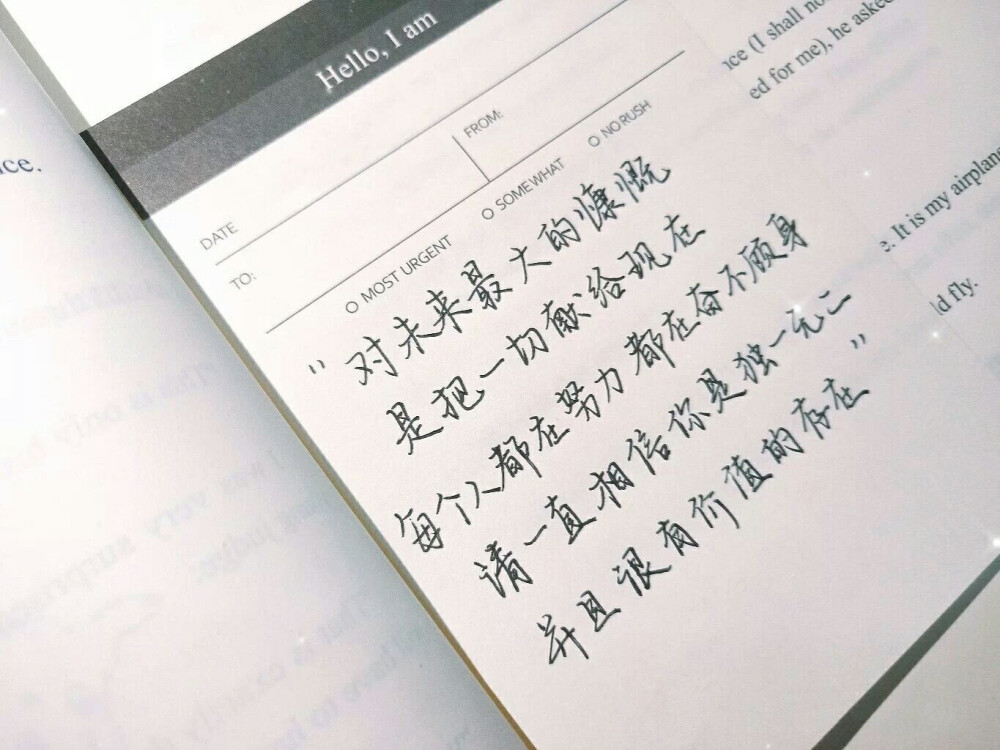 Hello, I am
DATE
FROM:
TO:
MOST URGENT
SOMEWHAT
NO RUSH
"对未来最大的慷慨
是把一切献给现在
每个人都在努力都在奋不顾身
请一直相信你是独一无二
并且很有价值的存在"
ce.
ce (I shall no
ed for me), he asked
e. It is my airplane
ld fly.